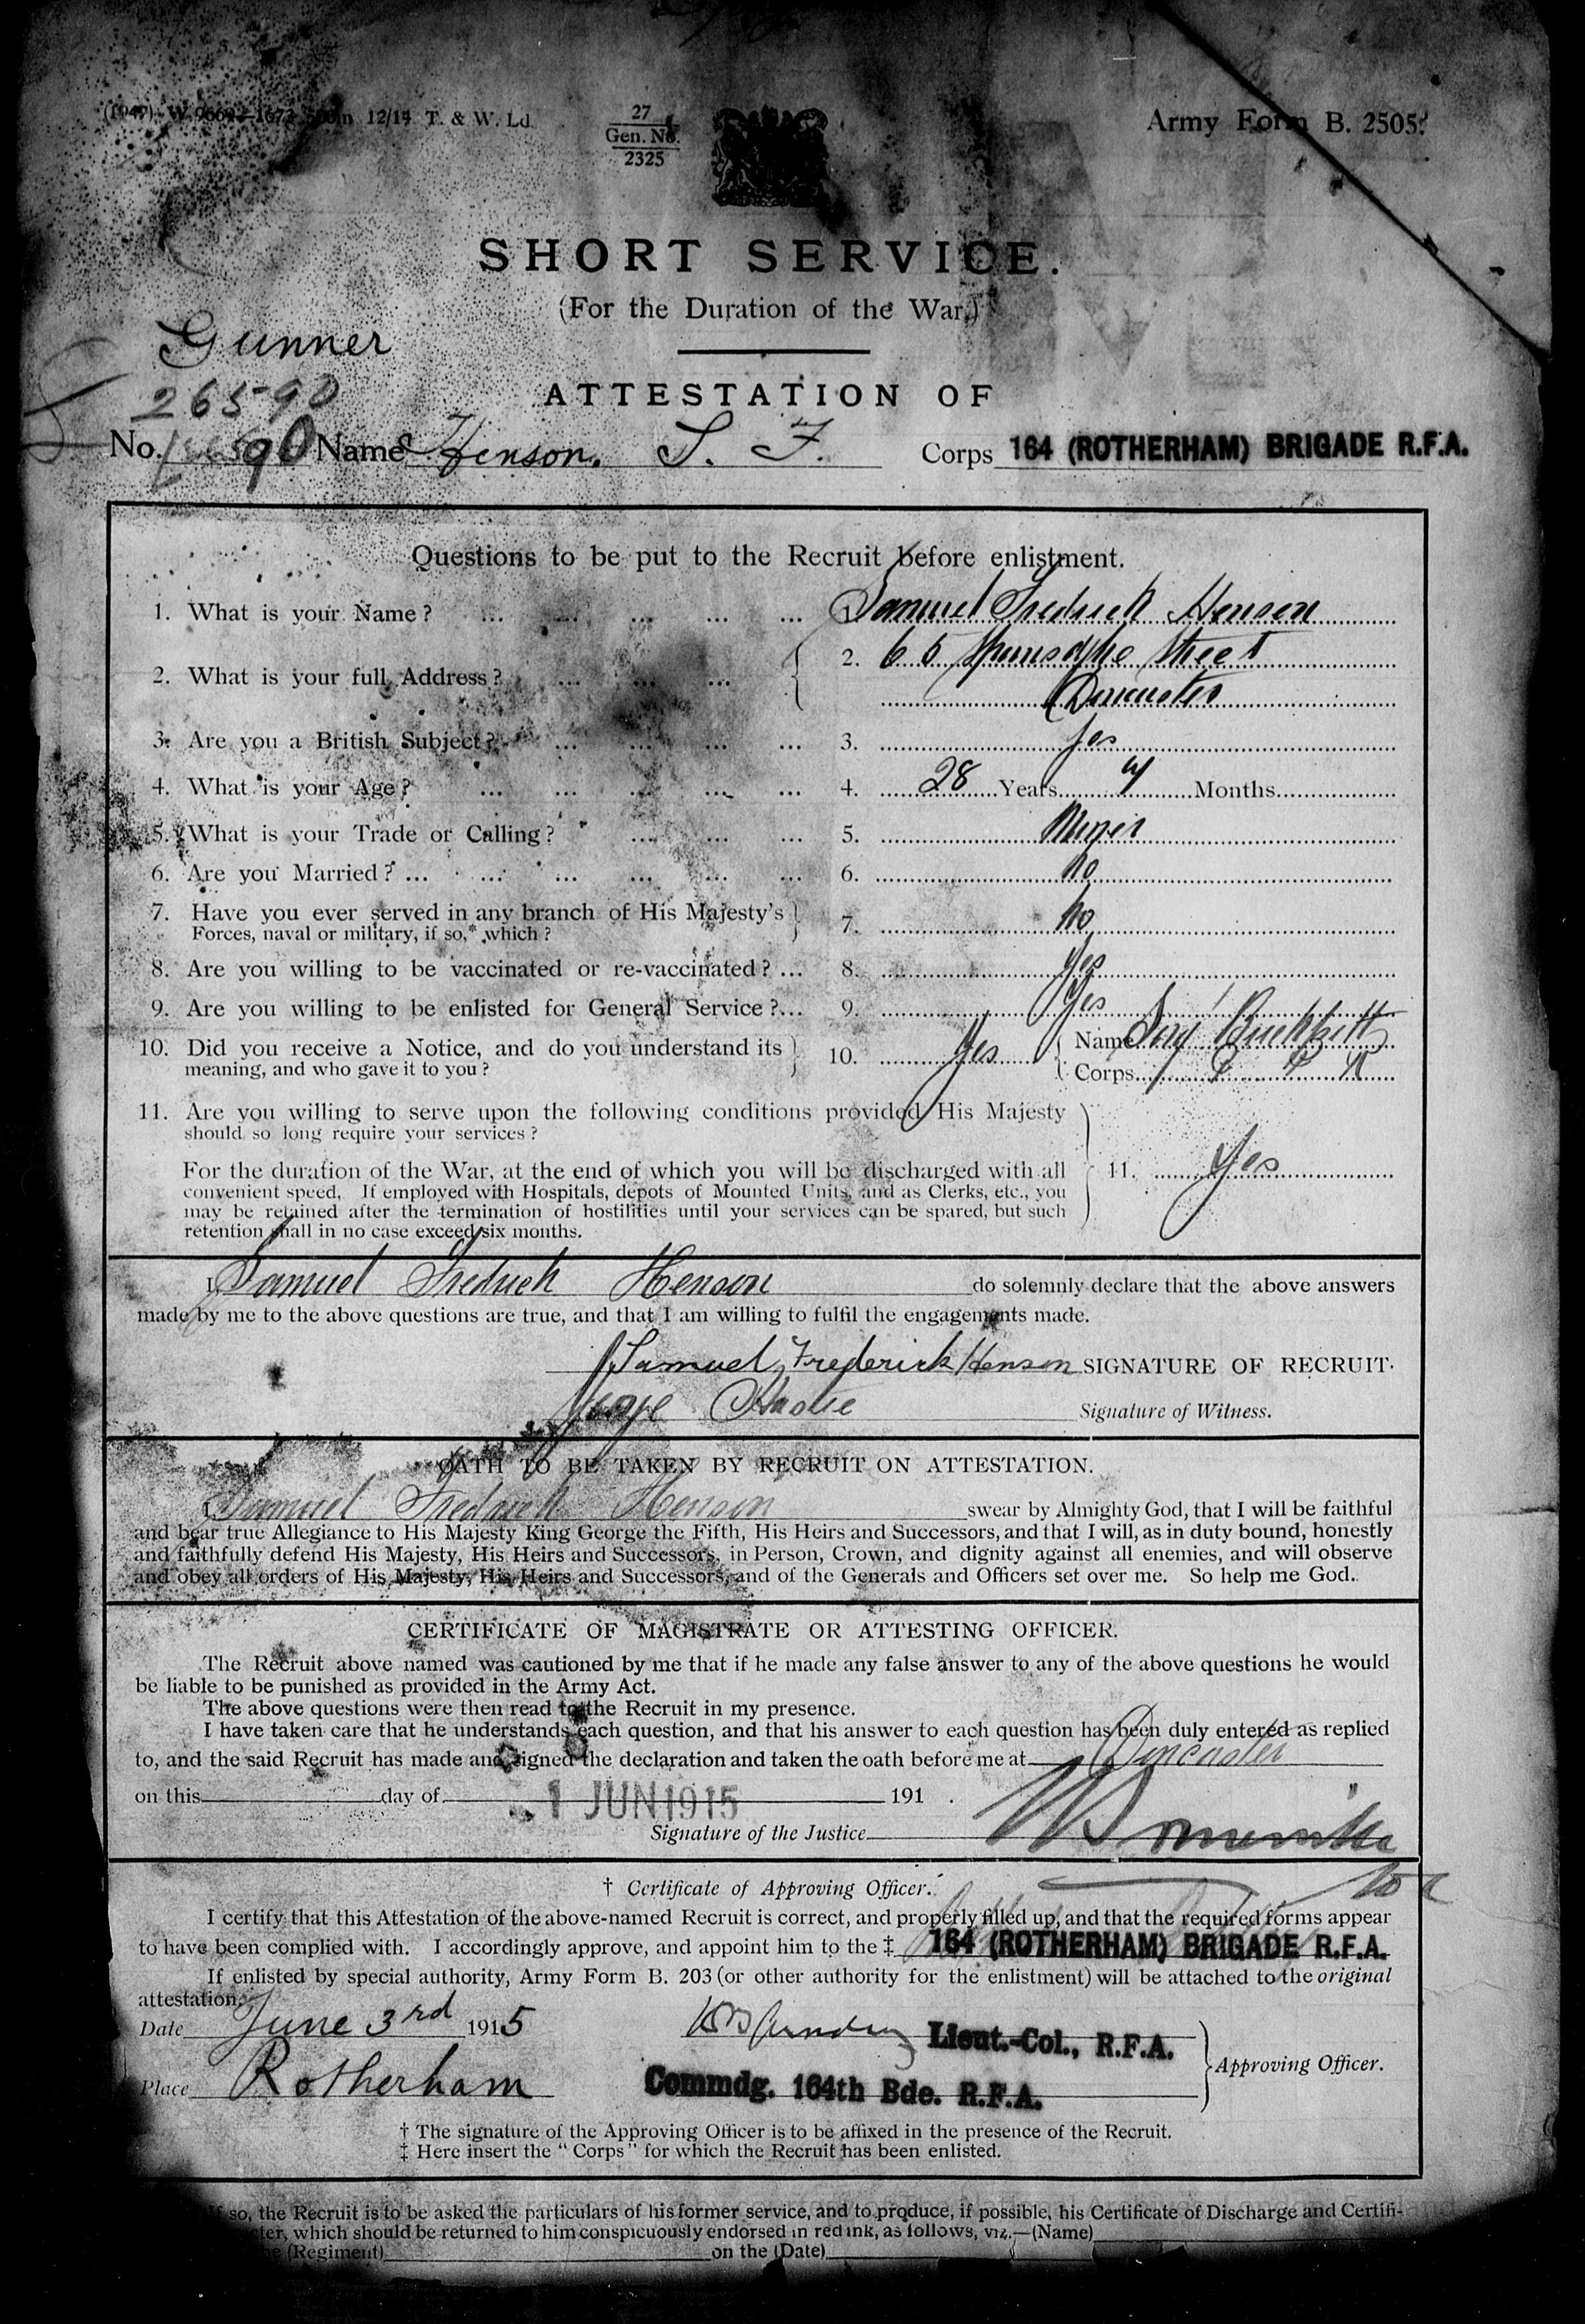 12/14 T. & W. Ld.
27
Gen. No.
2325
Army Form B. 2505.
SHORT SERVICE.
(For the Duration of the War.)
Gunner
26590
ATTESTATION OF
No. 90 Name Henson. S. F. Corps 164 (ROTHERHAM) BRIGADE R.F.A.
Questions to be put to the Recruit before enlistment.
1. What is your Name? ... ... ... ... ... 1. Samuel Fredrick Henson
2. What is your full Address? ... ... ... 2. 65 Street
Doncaster
3. Are you a British Subject? ... ... ... ... 3. Yes
4. What is your Age? ... ... ... ... ... 4. 28 Years Months
5. What is your Trade or Calling? ... ... ... 5. Miner
6. Are you Married? ... ... ... ... ... ... 6. no
7. Have you ever served in any branch of His Majesty's 7. No
Forces, naval or military, if so,* which?
8. Are you willing to be vaccinated or re-vaccinated? ... 8. Yes
9. Are you willing to be enlisted for General Service? ... 9. Yes
10. Did you receive a Notice, and do you understand its 10. Yes Name
meaning, and who gave it to you? Corps
11. Are you willing to serve upon the following conditions provided His Majesty
should so long require your services?
For the duration of the War, at the end of which you will be discharged with all 11. Yes
convenient speed. If employed with Hospitals, depots of Mounted Units, and as Clerks, etc., you
may be retained after the termination of hostilities until your services can be spared, but such
retention shall in no case exceed six months.
I Samuel Fredrick Henson do solemnly declare that the above answers
made by me to the above questions are true, and that I am willing to fulfil the engagements made.
Samuel Frederick Henson SIGNATURE OF RECRUIT.
Signature of Witness.
OATH TO BE TAKEN BY RECRUIT ON ATTESTATION.
I Samuel Fredrick Henson swear by Almighty God, that I will be faithful
and bear true Allegiance to His Majesty King George the Fifth, His Heirs and Successors, and that I will, as in duty bound, honestly
and faithfully defend His Majesty, His Heirs and Successors, in Person, Crown, and dignity against all enemies, and will observe
and obey all orders of His Majesty, His Heirs and Successors, and of the Generals and Officers set over me. So help me God.
CERTIFICATE OF MAGISTRATE OR ATTESTING OFFICER.
The Recruit above named was cautioned by me that if he made any false answer to any of the above questions he would
be liable to be punished as provided in the Army Act.
The above questions were then read to the Recruit in my presence.
I have taken care that he understands each question, and that his answer to each question has been duly entered as replied
to, and the said Recruit has made and signed the declaration and taken the oath before me at Doncaster
on this day of 1 JUN 1915 191 .
Signature of the Justice
† Certificate of Approving Officer.
I certify that this Attestation of the above-named Recruit is correct, and properly filled up, and that the required forms appear
to have been complied with. I accordingly approve, and appoint him to the ‡ 164 (ROTHERHAM) BRIGADE R.F.A.
If enlisted by special authority, Army Form B. 203 (or other authority for the enlistment) will be attached to the original
attestation.
Date June 3rd 1915 Lieut.-Col., R.F.A.
Approving Officer.
Place Rotherham Commdg. 164th Bde. R.F.A.
† The signature of the Approving Officer is to be affixed in the presence of the Recruit.
‡ Here insert the "Corps" for which the Recruit has been enlisted.
If so, the Recruit is to be asked the particulars of his former service, and to produce, if possible, his Certificate of Discharge and Certifi-
which should be returned to him conspicuously endorsed in red ink, as follows, viz.—(Name)
(Regiment) on the (Date)